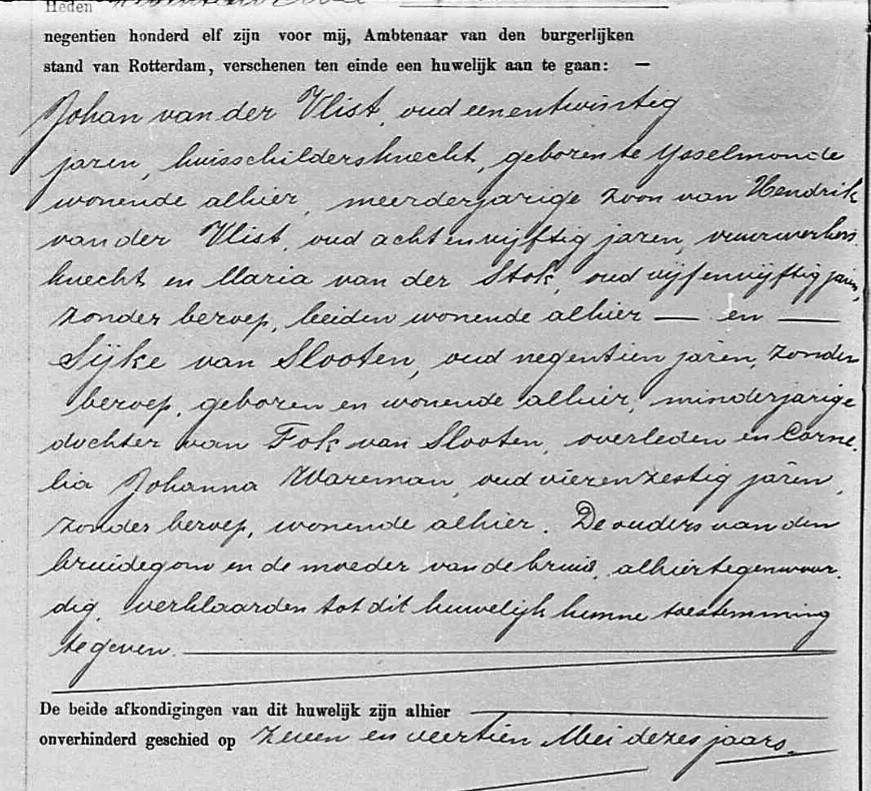 Heden
negentien honderd elf zijn voor mij, Ambtenaar van den burgerlijken
stand van Rotterdam, verschenen ten einde een huwelijk aan te gaan: —
Johan van der Vlist, oud eenentwintig
jaren, huisschildersknecht, geboren te IJsselmonde
wonende alhier, meerderjarige zoon van Hendrik
van der Vlist, oud achtenvijftig jaren, vuurwerkers
knecht en Maria van der Stok, oud vijfenvijftig jaren,
zonder beroep, beiden wonende alhier — en —
Sijke van Slooten, oud negentien jaren, zonder
beroep, geboren en wonende alhier, minderjarige
dochter van Fok van Slooten, overleden en Corne-
lia Johanna Wareman, oud vierenzestig jaren,
zonder beroep, wonende alhier. De ouders van den
bruidegom en de moeder van de bruid, alhier tegenwoor-
dig, verklaarden tot dit huwelijk hunne toestemming
te geven.
De beide afkondigingen van dit huwelijk zijn alhier
onverhinderd geschied op zeven en veertien Mei dezes jaars.